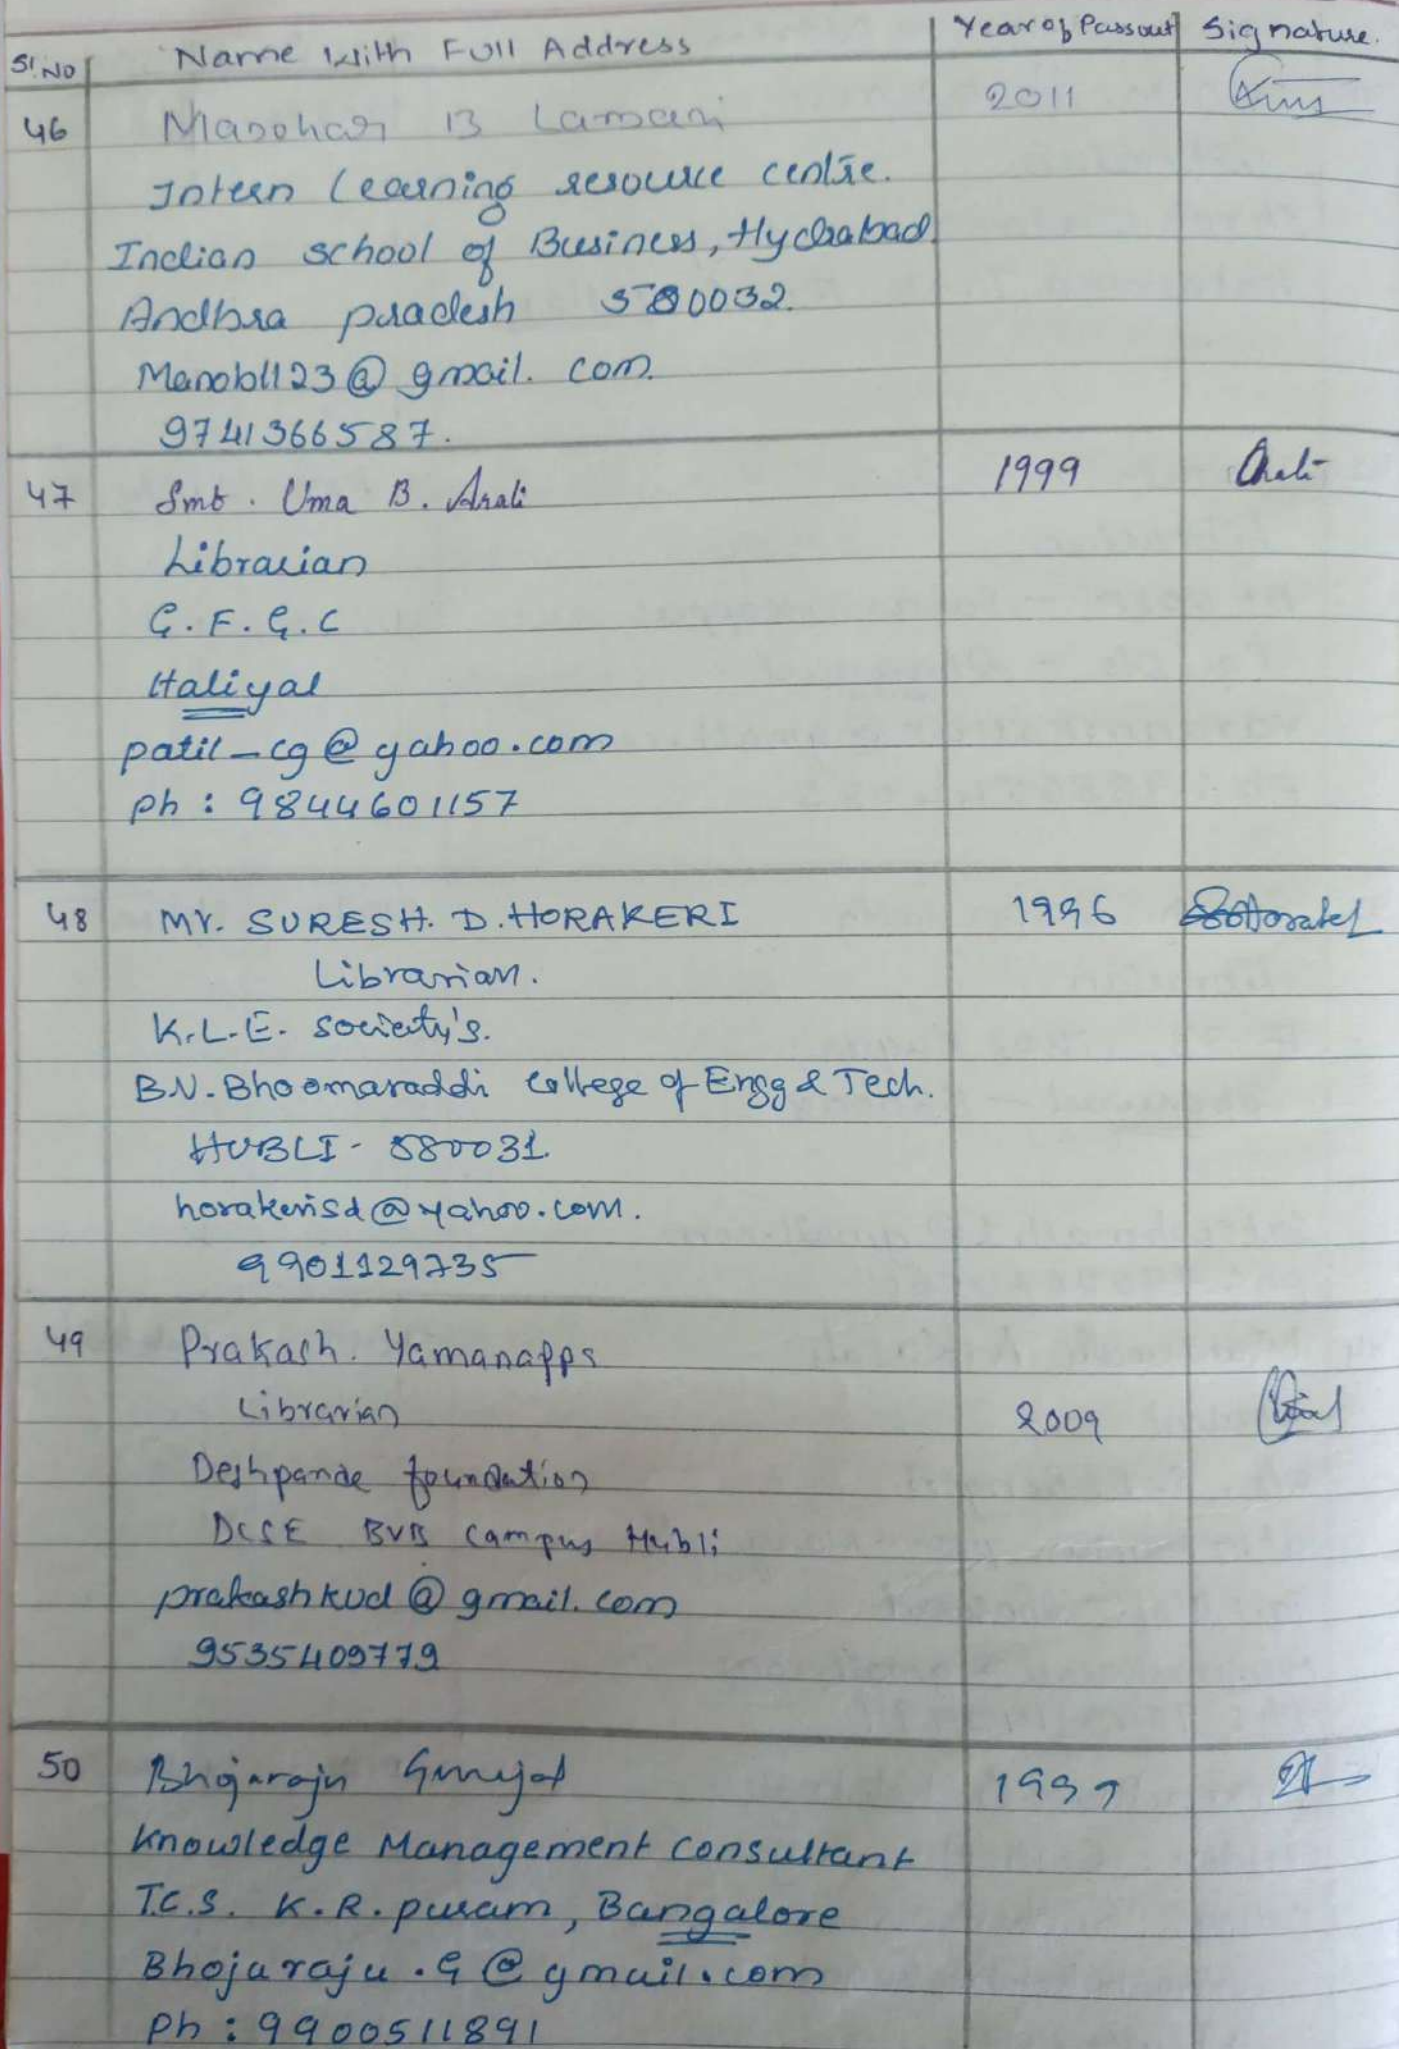 Sl. No Name With Full Address Year of Passout Signature.
46 Manohar B Lamani 2011
Intern Learning resource centre.
Indian school of Business, Hydrabad
Andhra pradesh 580032.
Manobl123@gmail.com.
9741366587.
47 Smt. Uma B. Arali 1999 Arali
Librarian
G.F.G.C
Haliyal
patil_cg@yahoo.com
Ph: 9844601157
48 Mr. SURESH. D. HORAKERI 1996
Librarian.
K.L.E. society's.
B.V. Bhoomaraddi College of Engg & Tech.
HUBLI - 580031
horakerisd@yahoo.com.
9901129735
49 Prakash. Yamanappa
Librarian 2009
Deshpande foundation
DCSE BVB Campus Hubli
prakashkud@gmail.com
9535409779
50 Bhojaraju
Knowledge Management Consultant
T.C.S. K.R. puram, Bangalore
Bhojaraju.G@gmail.com
Ph: 9900511891